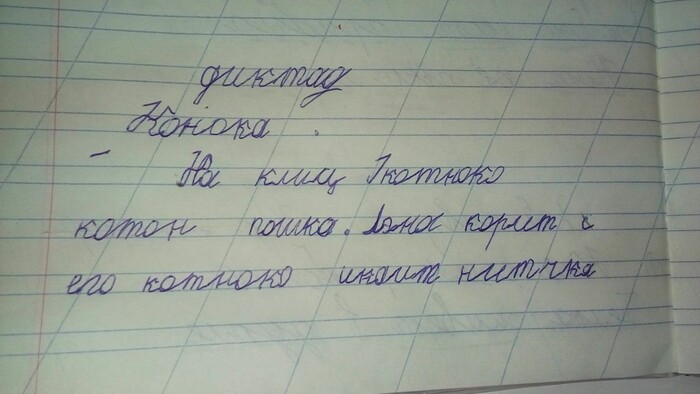 диктад
Конока
На клиц 1 котноко
котон пошка. Юна корит с
его котноко икоит ниточка